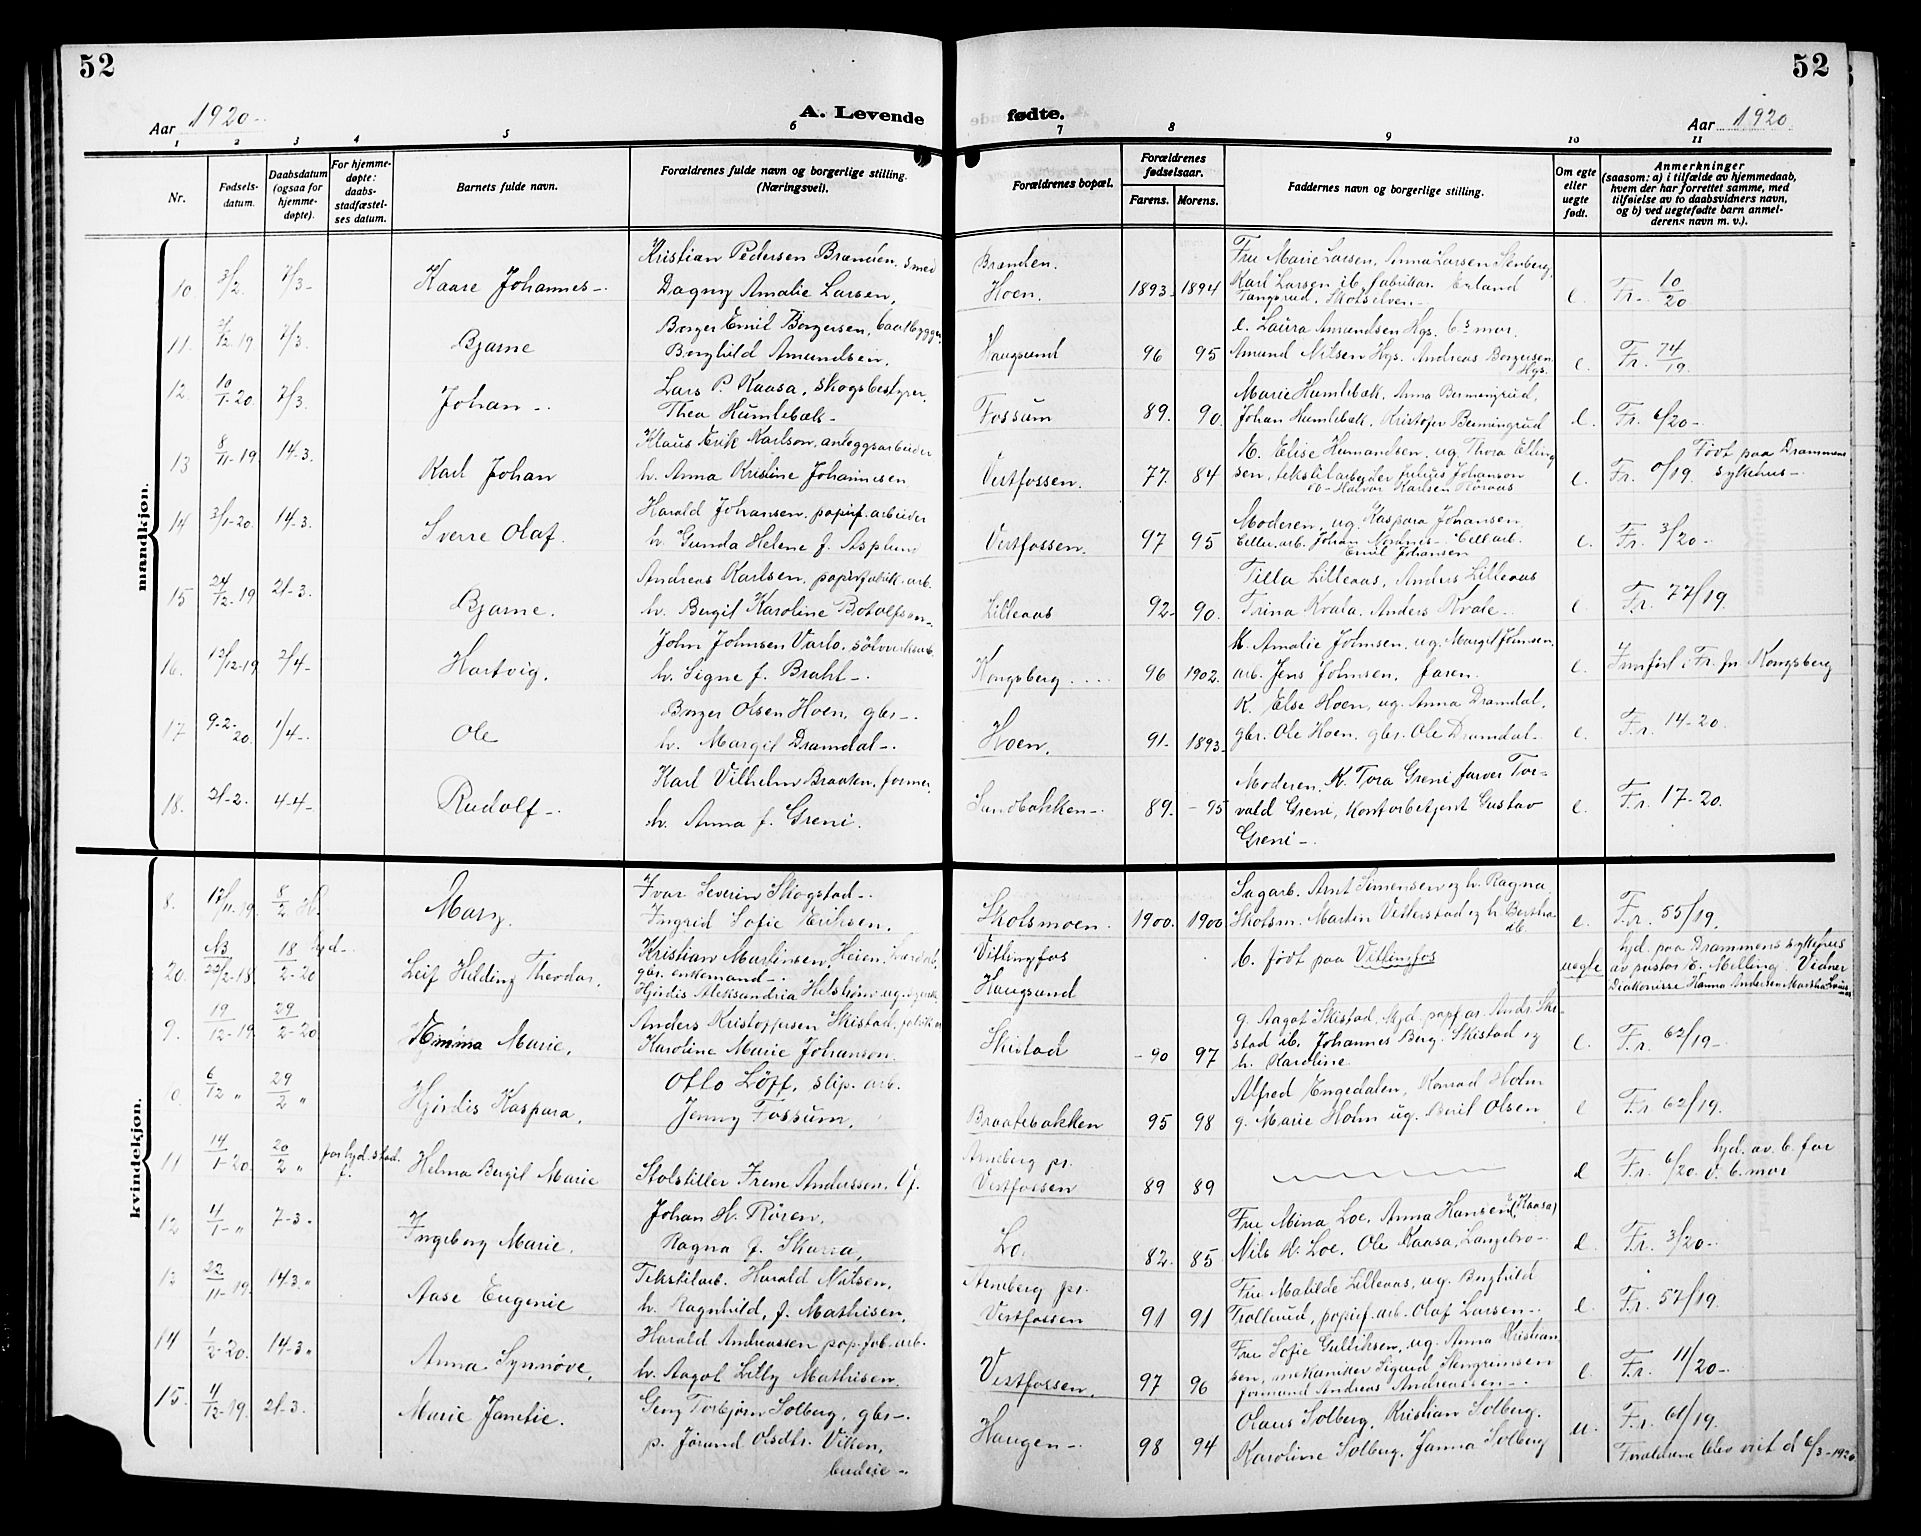 52
52
Aar 1920
A. Levende
fødte.
Aar 1920
1 2 3 4 5 6 7 8 9 10 11
Nr.
Fødsels-
datum.
Daabsdatum
(ogsaa for
hjemme-
døpte).
For hjemme-
døpte:
daabs-
stadfæstel-
ses datum.
Barnets fulde navn.
Forældrenes fulde navn og borgerlige stilling.
(Næringsvei).
Forældrenes bopæl.
Forældrenes
fødselsaar.
Farens. Morens.
Faddernes navn og borgerlige stilling.
Om egte
eller
uegte
født.
Anmerkninger
(saasom: a) i tilfælde av hjemmedaab,
hvem der har forrettet samme, med
tilføielse av to daabsvidners navn,
og b) ved uegtefødte barn anmel-
derens navn m. v.).
mandkjøn.
10 3/2. 7/3 Kaare Johannes
Kristian Pedersen Brænden, smed
Dagny Amalie Larsen,
Brænden.
Hoen. 1893 1894
Fru Marie Larsen, Anna Larsen Stenberg,
Karl Larsen ib. fabrikar. Erland
Tangerud, Skotselven
e. Fr. 10/20
11. 7/3. Bjarne
Borger Emil Borgersen, baatbygger
Borghild Amundsen,
Haugsund 96 95
e. Laura Amundsen Hgs. b's mor.
Amund Nilsen Hgs. Andreas Borgersen
Hgs.
e. Fr. 74/19.
12. 10/1.20. 7/3. Johan
Lars P. Kaasa, skogsbestyrer,
Thea Humlebæk
Fossum 89. 90.
Marie Humlebæk, Anna Bermingrud,
Johan Humlebæk, Kristofer Bermingrud
e. Fr. 6/20
13 8/11-19. 14-3. Karl Johan
Klaus Erik Karlson, anleggsarbeider
h. Anna Kristine Johannesen
Vestfossen. 77. 84
K. Elise Hermandsen, ug. Thora Elling
sen, tekstilarbeider Julius Johanson
Halvor Karlsen
e. Fr. 0/19. Født paa Drammens
sykehus
14 3/1-20. 14-3. Sverre Olaf.
Harald Johansen, papirf. arbeider
h. Gunda Helene f. Asplund
Vestfossen. 97 95
Moderen, ug. Kaspara Johansen,
Cellu. arb. Johan Nordnes Cell arb.
Emil Johansen
e. Fr. 3/20
15 24/12-19 21-3. Bjarne.
Andreas Karlsen, papirfabrik. arb.
h. Bergit Karoline Botolfsen
Lilleaas 92 90.
Tilla Lilleaas, Anders Lilleaas
Trina Kvala, Anders Kvale
e Fr. 77/19.
16. 12/12-19 2/4 Hartvig.
John Johnsen Varlo, sølvverksarb.
h. Signe f. Brahl
Kongsberg 96 1902.
K. Amalie Johnsen, ug. Margit Johnsen
arb. Jens Johnsen, faren.
e. Innført i Fr. pr Kongsberg
17 9-2-20. 1/4 Ole
Borger Olsen Hoen, gbr
h. Margit Dramdal
Hoen. 91 1893
K. Else Hoen, ug. Anna Dramdal,
gbr. Ole Hoen, gbr. Ole Dramdal
e. Fr. 14-20.
18. 21-2. 4-4 Rudolf
Karl Vilhelm Braaten, former,
h. Anna f. Greni.
Sandbakken 89. 95
Moderen, K. Tora Greni, farver Tor-
vald Greni, kontorbetjent Gustav
Greni
e. Fr. 17-20.
kvindekjøn.
8. 17/11-19. 8/2 H. Mary.
Ivar Severin Skogstad
Ingrid Sofie Eriksen,
Skolsmoen. 1900. 1900
Sagarb. Arnt Simensen og h. Ragna
Skolsm. Martin Vetterstad og h. Bertha
ib.
e. Fr. 55/19.
20. 18/2-20 hjd Leif Hilding Theodor,
Kristian Martinsen Heien,
gbr. enkemand
Hjørdis Aleksandria
Vittingfos
Haugsund
b. født paa Vittingfos
uegte hjd. paa Drammens sykehus
av pastor E. Melling. Vidner
Diakonisse Hanna Andersen Martha
9. 19/12-19 29/2-20 Emma Marie,
Anders Kristoffersen Skistad,
Karoline Marie Johanson.
Skistad 90 97
g. Aagot Skistad, papf. ar. Andr. Ski-
stad ib. Johannes Berg Skistad og
h. Karoline
e. Fr. 62/19
0. 6/12 " 29/2 " Hjørdis Kaspara,
Otto Löff, slip. arb.
Jenny Fossum,
Braatebakken 95 98
Alfred Engedalen, Konrad Holm
g. Marie Holm ug. Berit Olsen
e Fr. 62/19.
11 14/1-20. 20/2 " for hjd. stad.
f. Helma Bergit Marie
Stolstiller Irene Anderssen, Vf.
Arneberg pr.
Vestfossen 89 89
e Fr. 6/20. hjd. av b. far
v. b. mor
12 4/1 " 7-3. Ingeborg Marie.
Johan H. Røren,
Ragna f. Skarra,
Lo. 82. 85.
Fru Mina Loe, Anna Hansen (Kaasa)
Nils K. Loe, Ole Kaasa, Langebro
e. Fr. 3/20
13 22/11-19. 14-3 " Aase Eugenie
Tekstilarb. Harald Nilsen,
h. Ragnhild, f. Mathisen,
Arneberg pr.
Vestfossen 91 91
Fru Matilde Lilleaas, ug. Borghild
Trollerud, papirf. arb. Olaf Larsen
e. Fr. 57/19.
14 1/2-20. 14-3 " Anna Synnøve,
Harald Andreassen pap. fab. arb.
h. Aagot Lilly Mathisen.
Vestfossen. 97 96
Fru Sofie Gulliksen, ug. Anna Kristian
sen, mekaniker Sigurd Stengrimsen
formand Andreas Andreassen
e. Fr. 11/20
15. 4/12-19. 21-3. Marie Janette.
Georg Torbjørn Solberg, gbr
p. Jørund Olsdtr. Viken,
budeie
Haugen 98 94
Olaus Solberg, Kristian Solberg,
Karoline Solberg, Janna Solberg
u. Fr. 61/19.
Forældrene blev viet d 6/3-1920